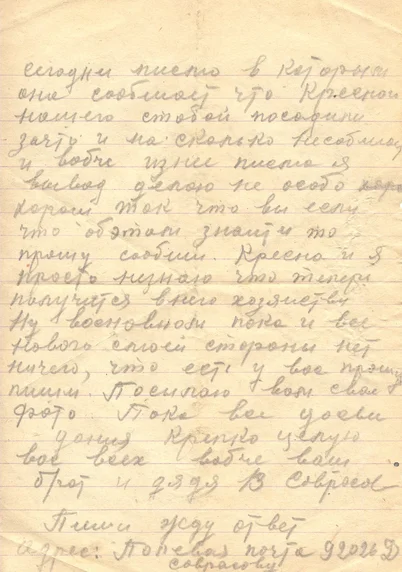 сегодни писмо в которым
она сообшает что Крёснои
нашего стобой посадили
зачто и на сколько несобшает
и вобче изнее писма я
вывад делаю не особо
хороши так что вы если
что обэтом знаити то
прошу сообши. Кресна и я
просто незнаю что тепери
получится внего хозяйству
Ну восновном пока и все
нового смоей стороны нет
ничего, что есть у вас прошу
пиши. Посилаю вам свае
фото. Пока все досви
дания Крепко целую
вас всех вобче ваш
брат и дядя В Саврасов
Пиши жду ответ
Адрес: Полевая почта 92026 Д
Саврасову